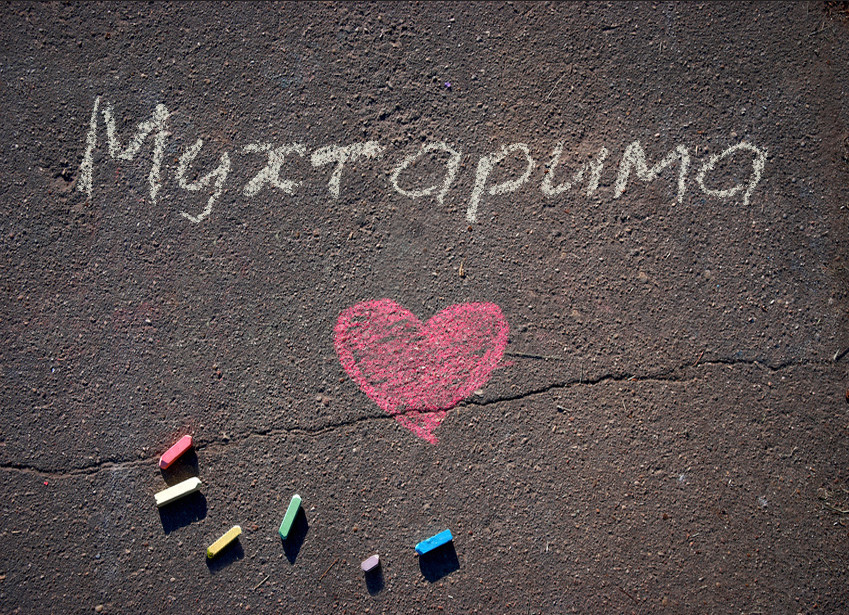 Мухтарима